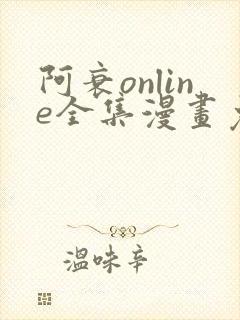 阿衰onlin
e全集漫畫
溫味辛